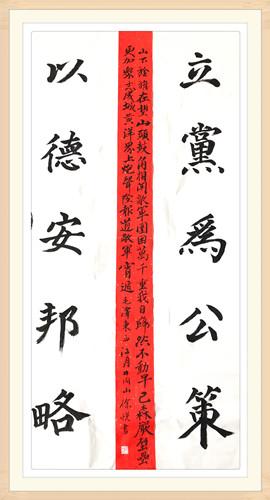 立黨爲公策
山下旌旗在望山頭鼓角相聞敵軍圍困萬千重我自巋然不動早已森嚴壁壘
更加眾志成城黃洋界上炮聲隆報道敵軍宵遁毛澤東西江月井岡山徐書
以德安邦略